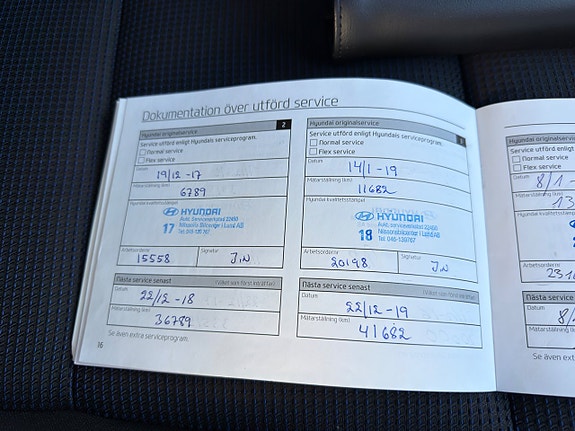 Dokumentation över utförd service
Hyundai originalservice 2
Service utförd enligt Hyundais serviceprogram.
Normal service
Flex service
Datum
19/12 -17
Mätarställning (km)
6789
Hyundai kvalitetsstämpel
HYUNDAI
Aukt. Serviceverkstad 22450
17 Nilssons Bilcenter i Lund AB
Tel. 046-139767
Arbetsordernr Signatur
15558 J.N
Nästa service senast (Vilket som först inträffar)
Datum
22/12 -18
Mätarställning (km)
36789
Se även extra serviceprogram.
16
Hyundai originalservice
Service utförd enligt Hyundais serviceprogram.
Normal service
Flex service
Datum
14/1 -19
Mätarställning (km)
11682
Hyundai kvalitetsstämpel
HYUNDAI
Aukt. Serviceverkstad 22450
18 Nilssons Bilcenter i Lund AB
Tel. 046-139767
Arbetsordernr Signatur
20198 J.N
Nästa service senast (Vilket som först inträffar)
Datum
22/12 -19
Mätarställning (km)
41682
Hyundai originalservice
Service utförd enligt
Normal service
Flex service
Datum
8/1-
Mätarställning (km)
13
Hyundai kvalitetsstämpel
Arbetsordernr
231
Nästa service
Datum
8/
Mätarställning (km)
Se även extra